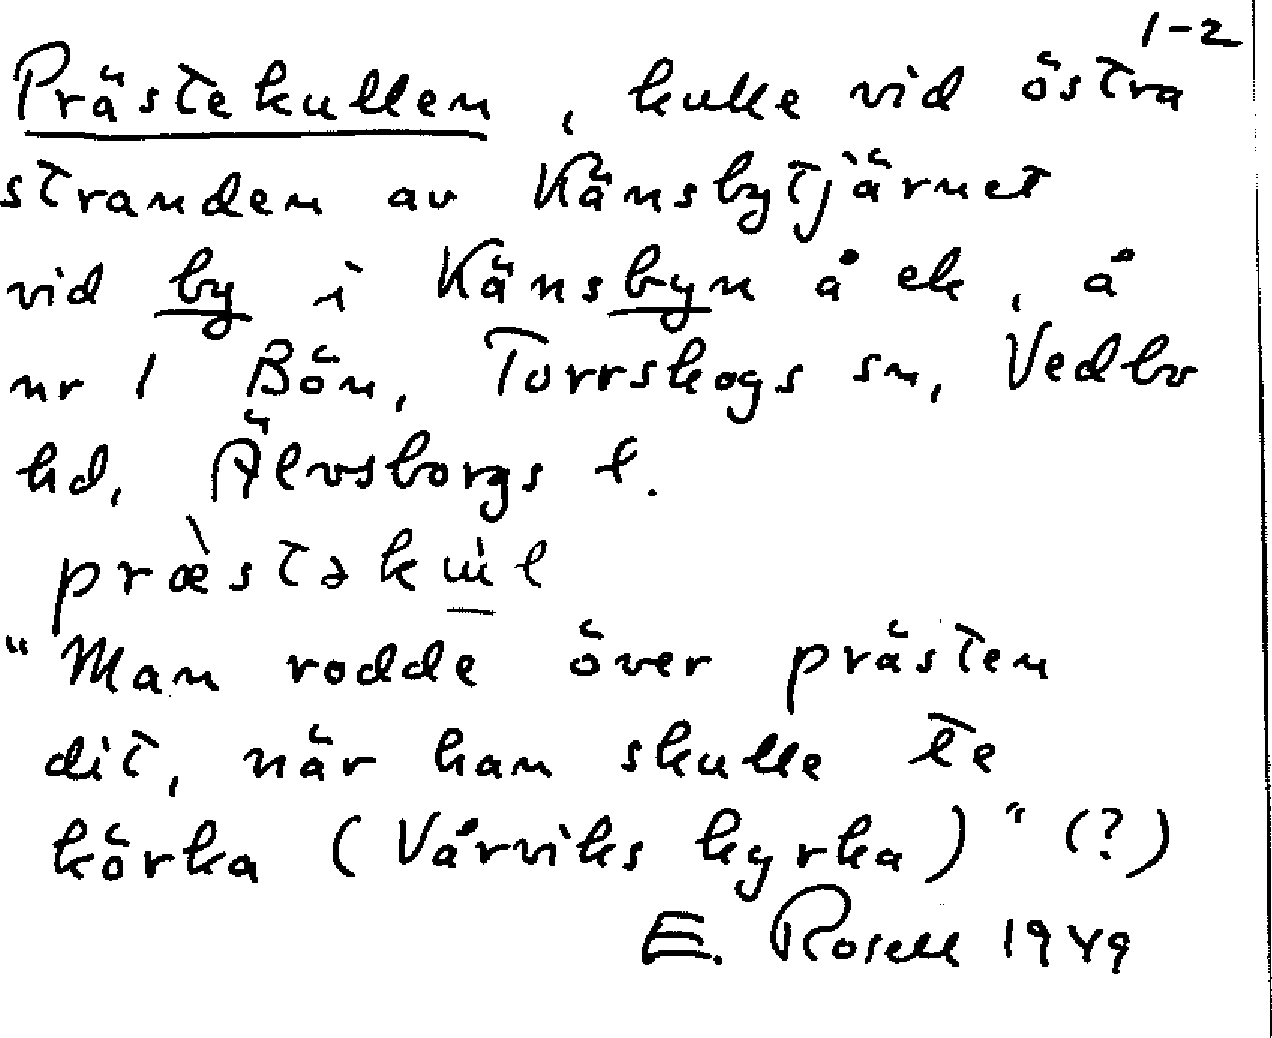 1-2
Prästekullen, kulle vid östra
stranden av Känsbytjärnet
vid by i Känsbyn å ek, å
nr 1 Bön, Torrskogs sn, Vedbo
hd, Älvsborgs l.
præ̀stəkɯ̀l
"Man rodde över prästen
dit, när han skulle te
körka (Vårviks kyrka)" (?)
E. Rosell 1949